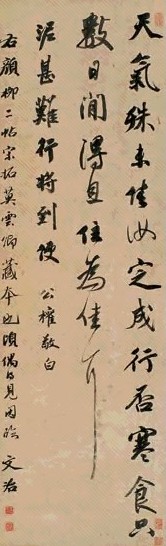 天氣殊未佳汝定成行否寒食只
數日間得且住為佳耳
泥甚難行將到便 公權敬白
右顏柳二帖宋拓莫雲卿藏本也頃偶得見因臨 文治